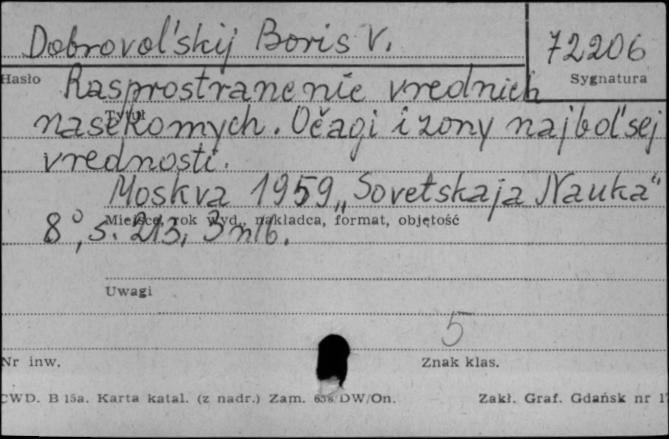 Dobrovol'skij Boris V.
72206
Hasło
Sygnatura
Rasprostranenie vrednich
Tytuł
nasekomych. Očagi i zony najbol'šej
vrednosti.
Moskva 1959 „Sovetskaja Nauka"
Miejsce, rok wyd., nakładca, format, objętość
8°, s. 213, 3 nlb.
Uwagi
5
Nr inw.
Znak klas.
CWD. B 15a. Karta katal. (z nadr.) Zam. 638/DW/On.
Zakł. Graf. Gdańsk nr 1